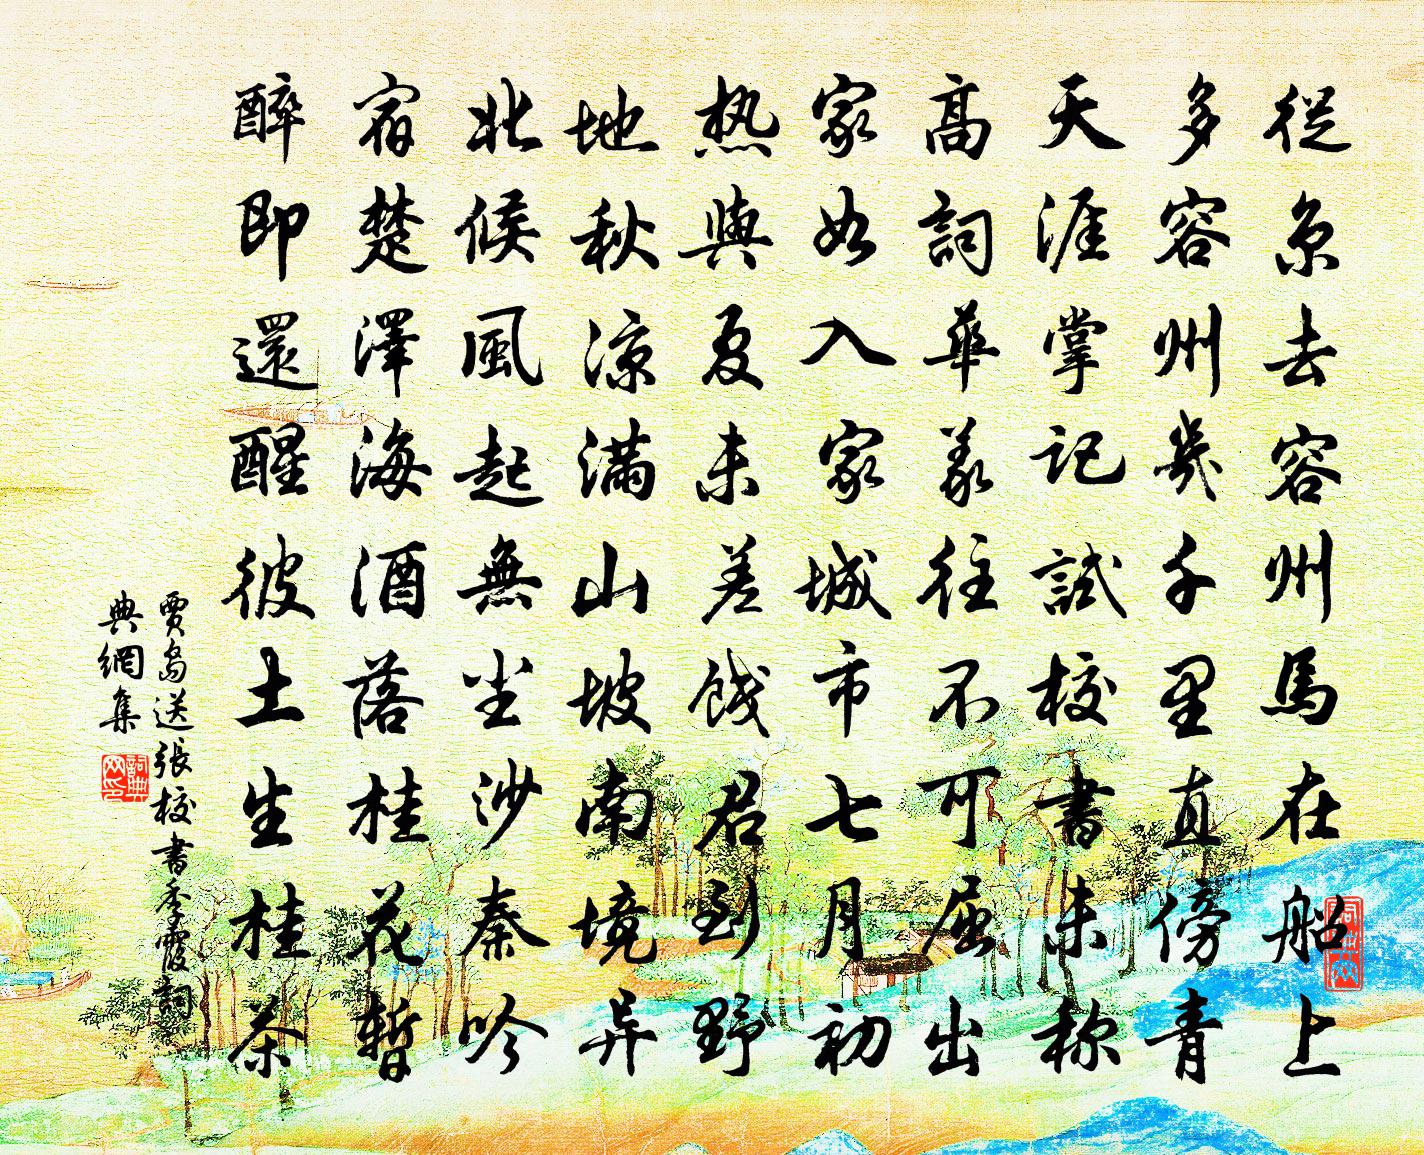 從京去容州馬在船上
多容州幾千里直傍青
天涯掌記試校書未称
高詞華義往不可屈出
家如入家城市七月初
热與夏未差餞君到野
地秋涼滿山坡南境异
北候風起無尘沙秦吟
宿楚澤海酒落桂花暫
醉即還醒彼土生桂茶
賈島送張校書季霞詞
典網集
詞典网印